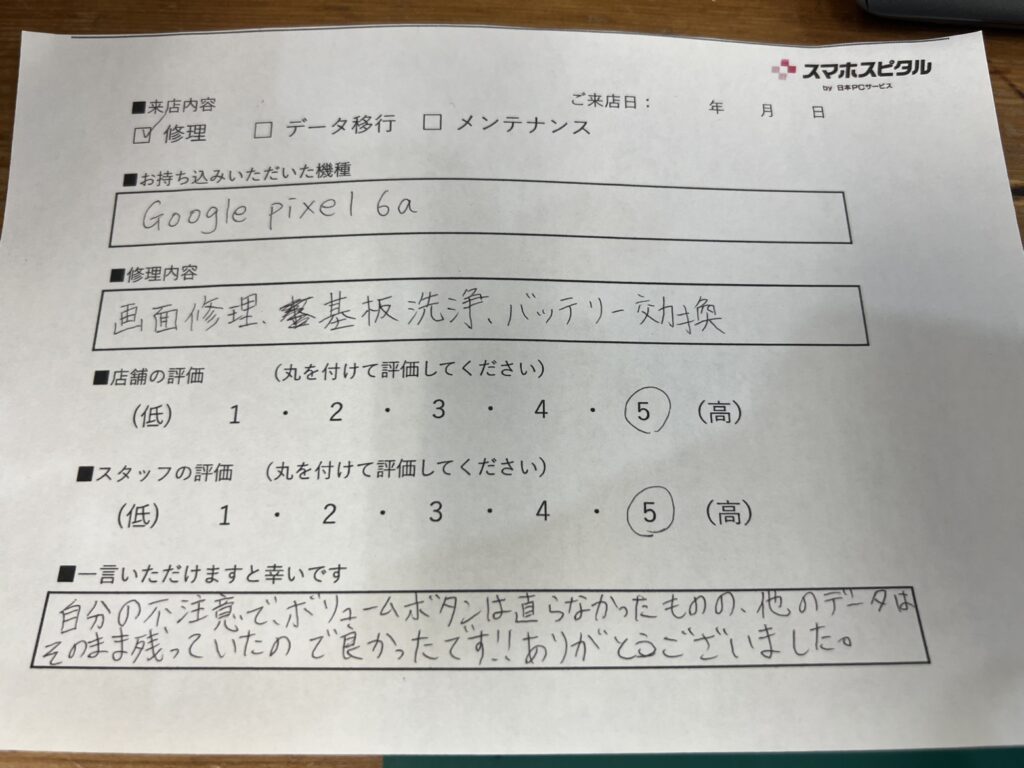 スマホスピタル
by 日本PCサービス
■来店内容
ご来店日： 年 月 日
☑ 修理 □ データ移行 □ メンテナンス
■お持ち込みいただいた機種
Google pixel 6a
■修理内容
画面修理、基板洗浄、バッテリー交換
■店舗の評価 （丸を付けて評価してください）
（低） 1 ・ 2 ・ 3 ・ 4 ・ 5 （高）
■スタッフの評価 （丸を付けて評価してください）
（低） 1 ・ 2 ・ 3 ・ 4 ・ 5 （高）
■一言いただけますと幸いです
自分の不注意で、ボリュームボタンは直らなかったものの、他のデータは
そのまま残っていたので良かったです!!ありがとうございました。